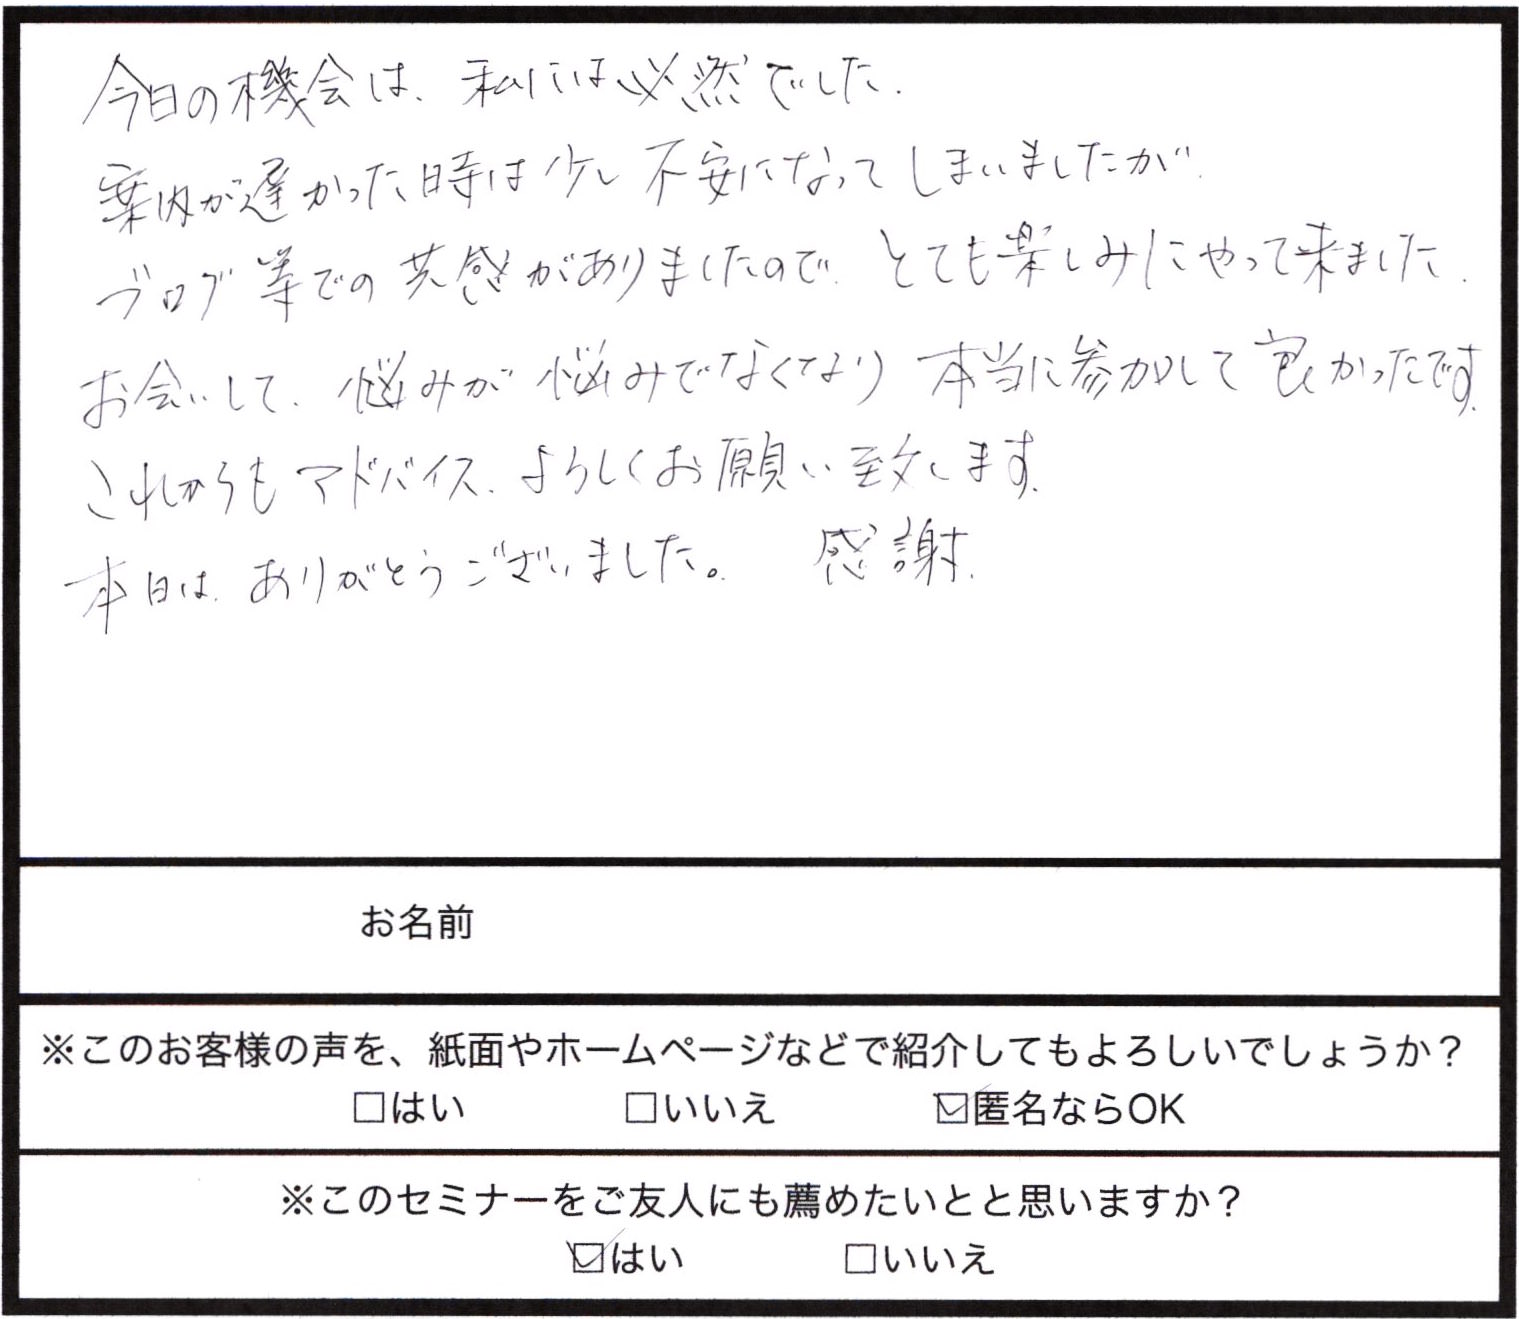 今日の機会は、私には必然でした.
案内が遅かった時は少し不安になってしまいましたが.
ブログ等での共感がありましたので、とても楽しみにやって来ました.
お会いして、悩みが悩みでなくなり本当に参加して良かったです.
これからもアドバイス、よろしくお願い致します.
本日は、ありがとうございました。 感謝.
お名前
※このお客様の声を、紙面やホームページなどで紹介してもよろしいでしょうか？
□はい □いいえ ☑匿名ならOK
※このセミナーをご友人にも薦めたいとと思いますか？
☑はい □いいえ